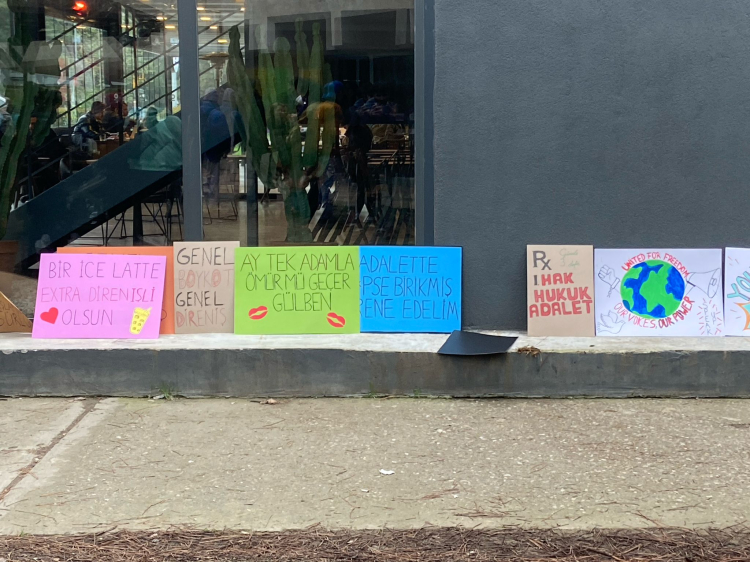 BİR ICE LATTE
EXTRA DİRENİŞLİ
OLSUN
GENEL
BOYKOT
GENEL
DİRENİŞ
AY TEK ADAMLA
ÖMÜR MÜ GEÇER
GÜLBEN
ADALETTE
PSE BİRİKMİŞ
ENE EDELİM
Rx
1 HAK
HUKUK
ADALET
UNITED FOR FREEDOM
OUR VOICES, OUR POWER